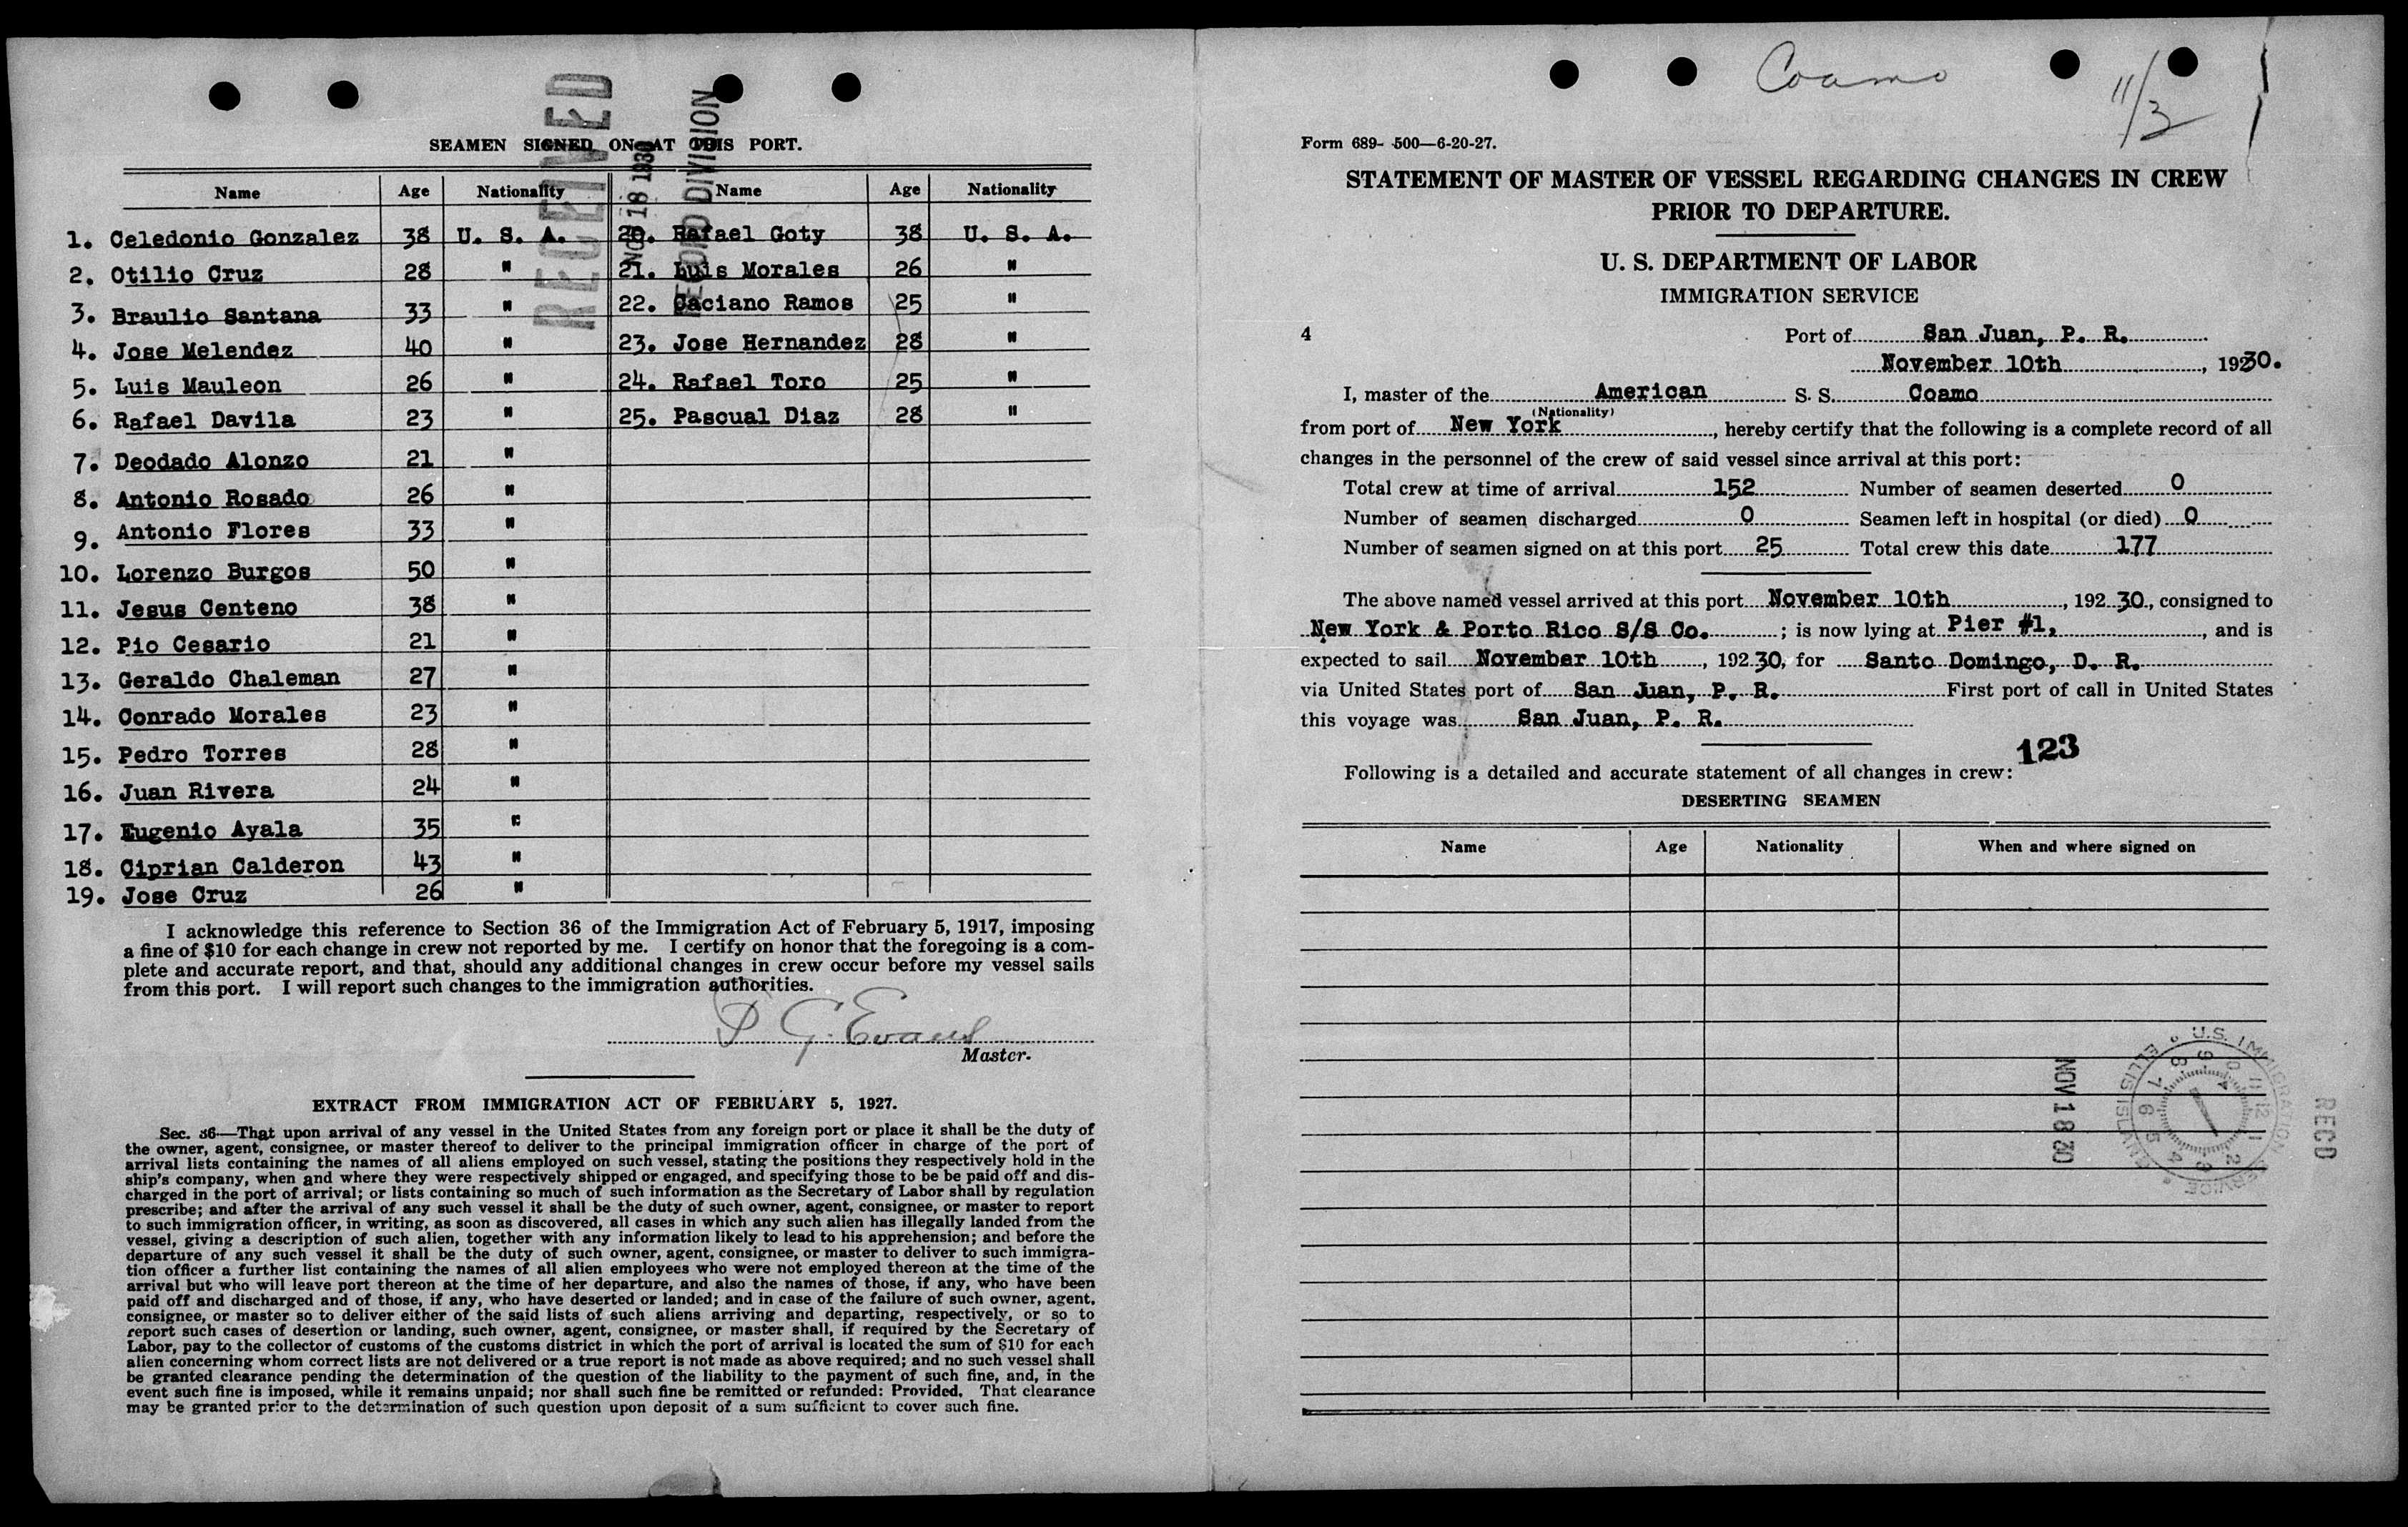 RECEIVED
NOV 18 1930
RECORD DIVISION
SEAMEN SIGNED ON AT THIS PORT.
Name Age Nationality Name Age Nationality
1. Celedonio Gonzalez 38 U. S. A. 20. Rafael Goty 38 U. S. A.
2. Otilio Cruz 28 " 21. Luis Morales 26 "
3. Braulio Santana 33 " 22. Caciano Ramos 25 "
4. Jose Melendez 40 " 23. Jose Hernandez 28 "
5. Luis Mauleon 26 " 24. Rafael Toro 25 "
6. Rafael Davila 23 " 25. Pascual Diaz 28 "
7. Deodado Alonzo 21 "
8. Antonio Rosado 26 "
9. Antonio Flores 33 "
10. Lorenzo Burgos 50 "
11. Jesus Centeno 38 "
12. Pio Cesario 21 "
13. Geraldo Chaleman 27 "
14. Conrado Morales 23 "
15. Pedro Torres 28 "
16. Juan Rivera 24 "
17. Eugenio Ayala 35 "
18. Ciprian Calderon 43 "
19. Jose Cruz 26 "
I acknowledge this reference to Section 36 of the Immigration Act of February 5, 1917, imposing
a fine of $10 for each change in crew not reported by me. I certify on honor that the foregoing is a com-
plete and accurate report, and that, should any additional changes in crew occur before my vessel sails
from this port. I will report such changes to the immigration authorities.
G. Evans
Master.
EXTRACT FROM IMMIGRATION ACT OF FEBRUARY 5, 1927.
Sec. 36—That upon arrival of any vessel in the United States from any foreign port or place it shall be the duty of
the owner, agent, consignee, or master thereof to deliver to the principal immigration officer in charge of the port of
arrival lists containing the names of all aliens employed on such vessel, stating the positions they respectively hold in the
ship's company, when and where they were respectively shipped or engaged, and specifying those to be be paid off and dis-
charged in the port of arrival; or lists containing so much of such information as the Secretary of Labor shall by regulation
prescribe; and after the arrival of any such vessel it shall be the duty of such owner, agent, consignee, or master to report
to such immigration officer, in writing, as soon as discovered, all cases in which any such alien has illegally landed from the
vessel, giving a description of such alien, together with any information likely to lead to his apprehension; and before the
departure of any such vessel it shall be the duty of such owner, agent, consignee, or master to deliver to such immigra-
tion officer a further list containing the names of all alien employees who were not employed thereon at the time of the
arrival but who will leave port thereon at the time of her departure, and also the names of those, if any, who have been
paid off and discharged and of those, if any, who have deserted or landed; and in case of the failure of such owner, agent,
consignee, or master so to deliver either of the said lists of such aliens arriving and departing, respectively, or so to
report such cases of desertion or landing, such owner, agent, consignee, or master shall, if required by the Secretary of
Labor, pay to the collector of customs of the customs district in which the port of arrival is located the sum of $10 for each
alien concerning whom correct lists are not delivered or a true report is not made as above required; and no such vessel shall
be granted clearance pending the determination of the question of the liability to the payment of such fine, and, in the
event such fine is imposed, while it remains unpaid; nor shall such fine be remitted or refunded: Provided. That clearance
may be granted prior to the determination of such question upon deposit of a sum sufficient to cover such fine.
Coamo 11/3
Form 689- 500—6-20-27.
STATEMENT OF MASTER OF VESSEL REGARDING CHANGES IN CREW
PRIOR TO DEPARTURE.
U. S. DEPARTMENT OF LABOR
IMMIGRATION SERVICE
4 Port of San Juan, P. R.
November 10th, 1930.
I, master of the American S. S. Coamo
(Nationality)
from port of New York, hereby certify that the following is a complete record of all
changes in the personnel of the crew of said vessel since arrival at this port:
Total crew at time of arrival 152 Number of seamen deserted 0
Number of seamen discharged 0 Seamen left in hospital (or died) 0
Number of seamen signed on at this port 25 Total crew this date 177
The above named vessel arrived at this port November 10th, 192 30, consigned to
New York & Porto Rico S/S Co. ; is now lying at Pier #1, , and is
expected to sail November 10th, 192 30, for Santo Domingo, D. R.
via United States port of San Juan, P. R. First port of call in United States
this voyage was San Juan, P. R.
123
Following is a detailed and accurate statement of all changes in crew:
DESERTING SEAMEN
Name Age Nationality When and where signed on
NOV 18 30
U.S. IMMIGRATION SERVICE
ELLIS ISLAND
12 1 2 3 4 5 6 7 8 9 10 11
RECD